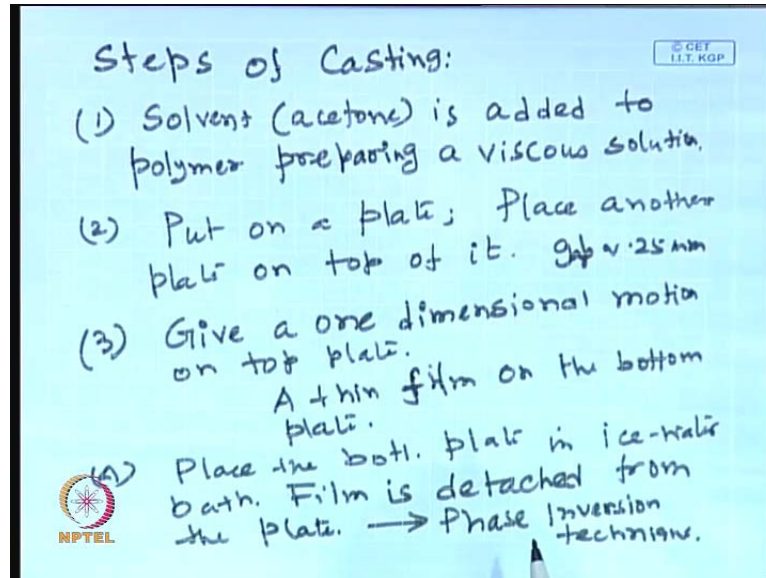 Steps of Casting:
© CET
I.I.T. KGP
(1) Solvent (acetone) is added to
polymer preparing a viscous solution.
(2) Put on a plate; Place another
plate on top of it. gap ~ .25 mm
(3) Give a one dimensional motion
on top plate.
A thin film on the bottom
plate.
(4) Place the bott. plate in ice-water
bath. Film is detached from
the plate. → Phase Inversion
technique.
NPTEL